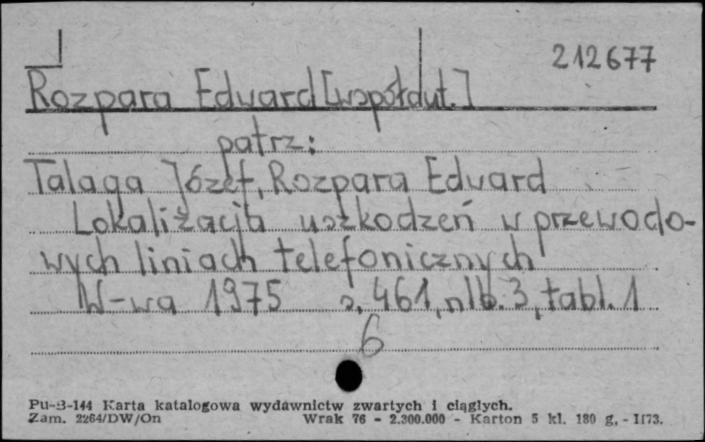 212677
Rozpara Eduard [współaut.]
patrz:
Talaga Józef, Rozpara Eduard
Lokalizacja uszkodzeń w przewodo-
wych liniach telefonicznych
W-wa 1975 s. 461, nlb. 3, tabl. 1
6
Pu-B-144 Karta katalogowa wydawnictw zwartych i ciągłych.
Zam. 2264/DW/On Wrak 76 - 2.300.000 - Karton 5 kl. 180 g. - II73.